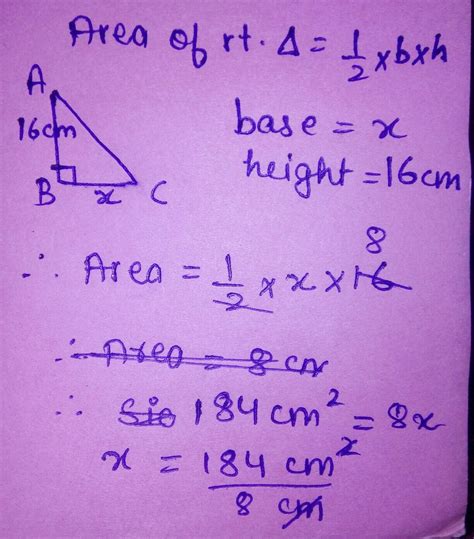 Area of rt. Δ = 1/2 × b × h
A
16cm
B x C
base = x
height = 16cm
8
∴ Area = 1/2 × x × 16
∴ Area = 8 cm
∴ Sie 184 cm² = 8x
x = 184 cm²
8 cm